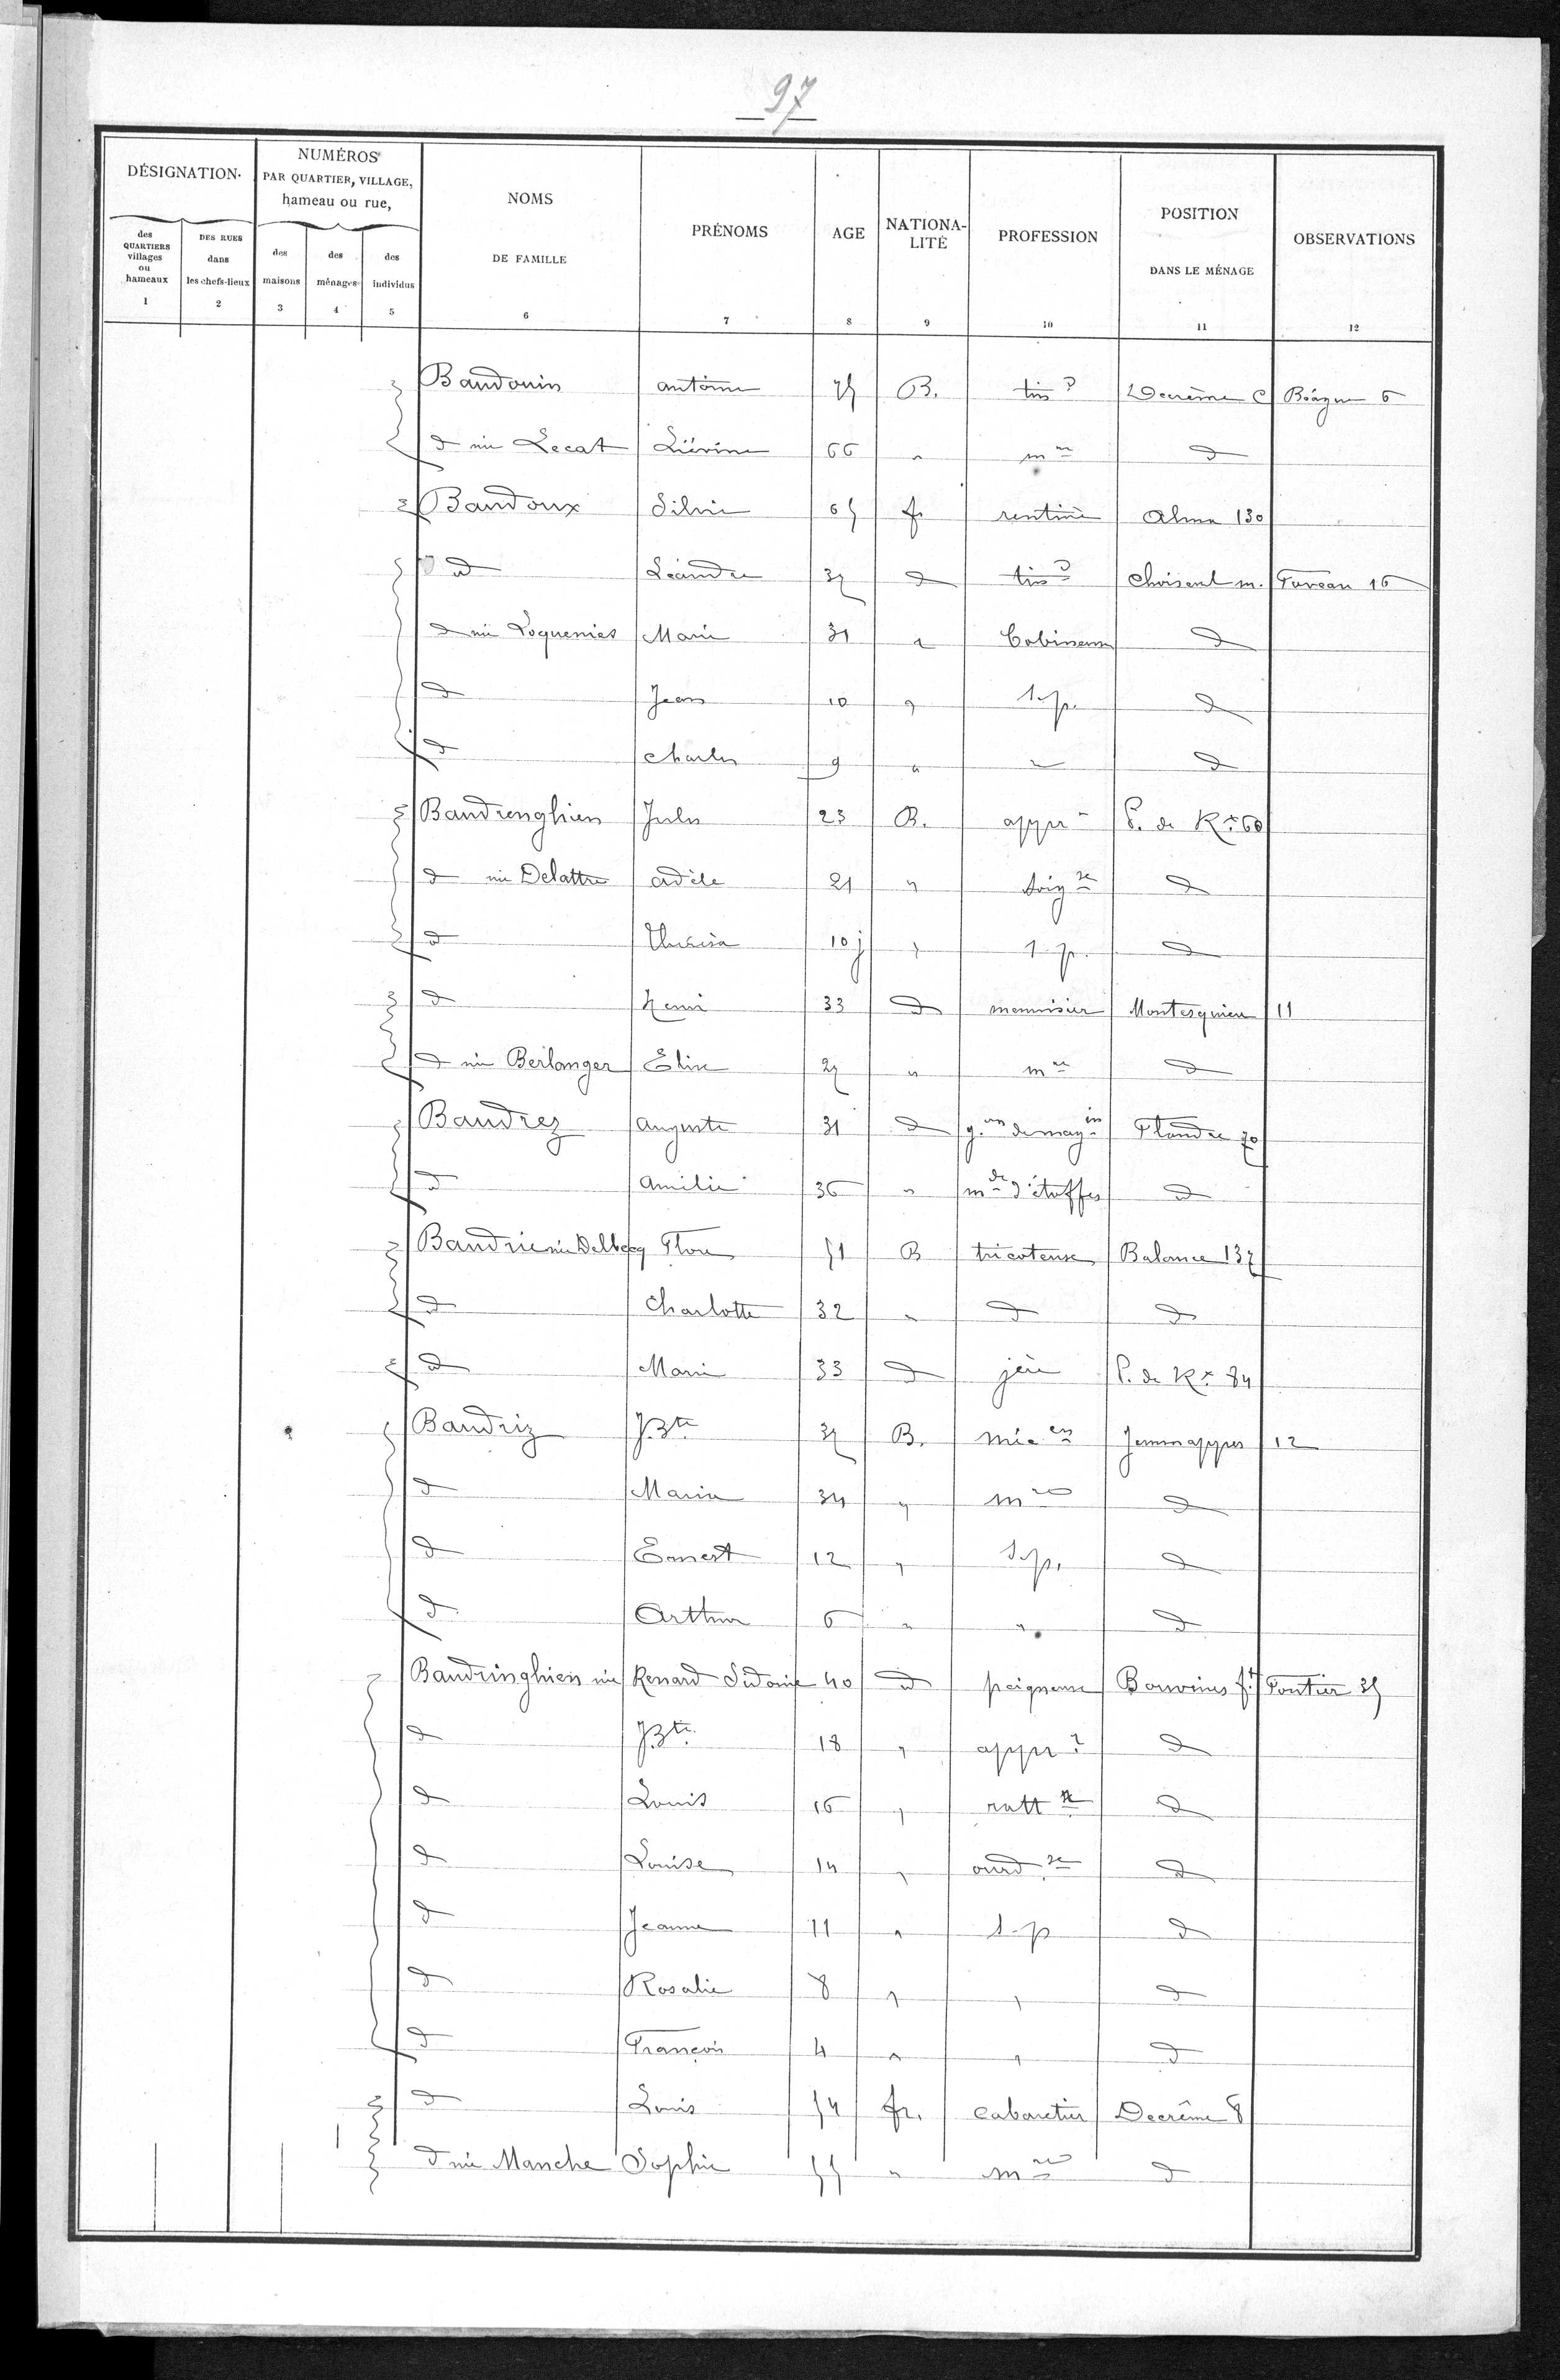 97
DÉSIGNATION
NUMÉROS PAR QUARTIER, VILLAGE, hameau ou rue,
NOMS DE FAMILLE
PRÉNOMS
AGE
NATIONALITÉ
PROFESSION
POSITION DANS LE MÉNAGE
OBSERVATIONS
des QUARTIERS villages ou hameaux
DES RUES dans les chefs-lieux
des maisons
des ménages
des individus
1 2 3 4 5 6 7 8 9 10 11 12
Baudouin antoine 75 B. tisd Decrême C Béague 6
d née Lecat Liévine 66 " mre d
Baudoux Silvie 65 fr rentière Alma 130
d Léandre 37 d tisd Choiseul m. Taveau 16
d née Loquenies Marie 31 " bobineuse d
d Jean 10 " s.p. d
d Charles 9 " " d
Baudrenghien Jules 23 B. appr P. de Rx 60
d née Delattre adèle 21 " soigse d
d Thérésa 10 j " s.p. d
d Henri 33 d menuisier Montesquieu 11
d née Berlanger Elise 27 " mre d
Baudrez auguste 31 d gon de magin Flandre 70
d amélie 36 " mde d'étoffes d
Baudrie née Delbecq Flore 51 B tricoteuse Balance 137
d Charlotte 32 " d d
d Marie 33 d jère P. de Rx 84
Baudriz J.Bte 37 B. mécen Jemmappes 12
d Maria 34 " mre d
d Ernest 12 " s.p. d
d Arthur 6 " " d
Baudringhien née Renard Sidonie 40 d peigneuse Bouvines ft Pontier 35
d J.Bte 18 " appr d
d Louis 16 " rattr d
d Louise 14 " ourdse d
d Jeanne 11 " s.p d
d Rosalie 8 " " d
d François 4 " " d
d Louis 54 fr. cabaretier Decrême 8
d née Manche Sophie 55 " mre d